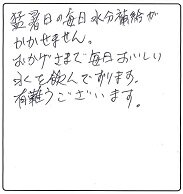 猛暑日の毎日水分補給が
かかせません。
おかげさまで毎日おいしい
水を飲んでおります。
有難うございます。